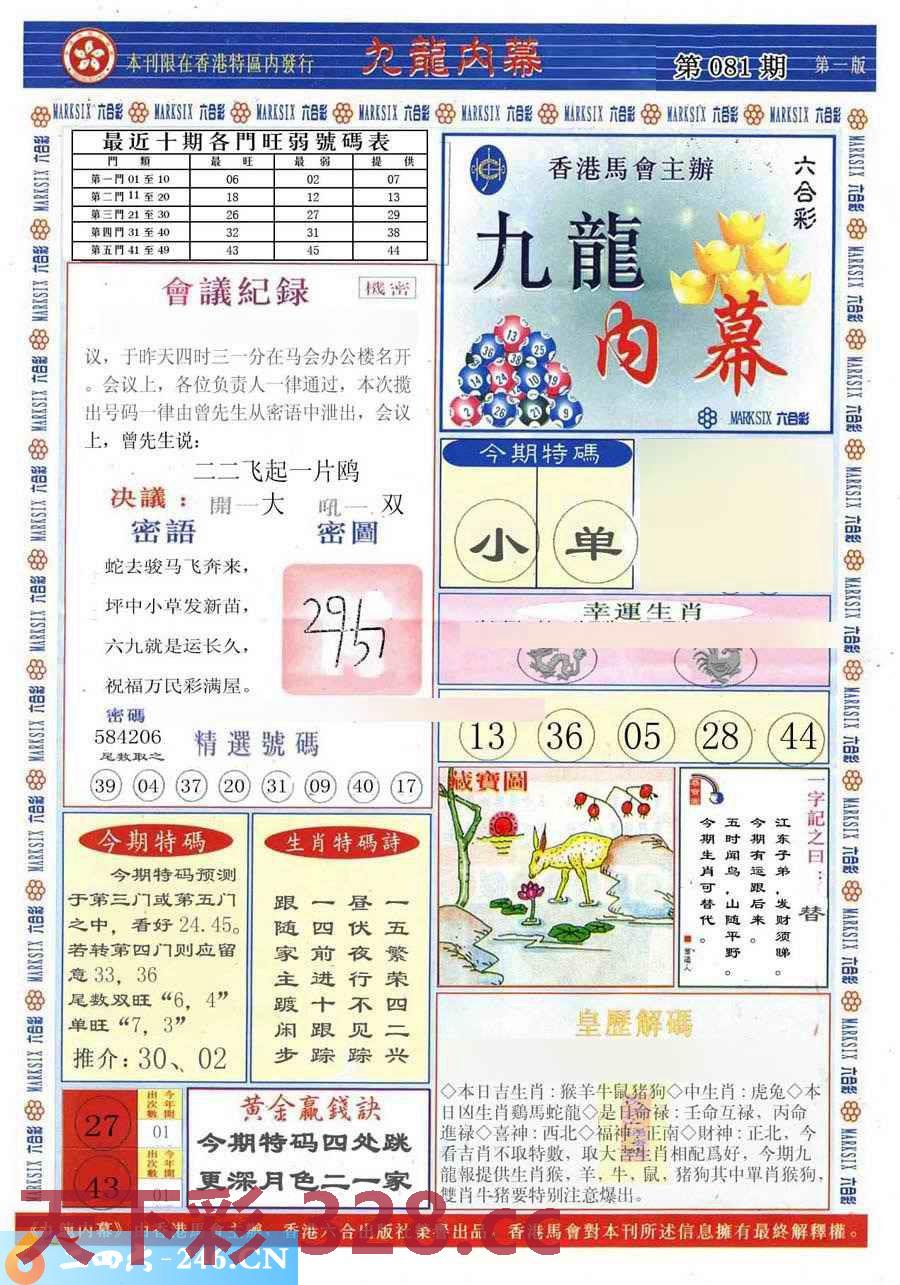 本刊限在香港特區内發行
九龍内幕
第 081 期
第一版
MARKSIX 六合彩
最近十期各門旺弱號碼表
門 類 最 旺 最 弱 提 供
第一門 01 至 10 06 02 07
第二門 11 至 20 18 12 13
第三門 21 至 30 26 27 29
第四門 31 至 40 32 31 38
第五門 41 至 49 43 45 44
會議紀録
機密
议，于昨天四时三一分在马会办公楼名开
。会议上，各位负责人一律通过，本次搅
出号码一律由曾先生从密语中泄出，会议
上，曾先生说：
二二飞起一片鸥
决議： 開一大 吼一 双
密語 密圖
蛇去骏马飞奔来，
坪中小草发新苗，
六九就是运长久，
祝福万民彩满屋。
密碼
584206
尾数取之
精選號碼
39 04 37 20 31 09 40 17
香港馬會主辦
六合彩
九龍
内幕
MARKSIX 六合彩
今期特碼
小 单
幸運生肖
13 36 05 28 44
藏寶圖
一字記之曰：替
江东子弟，发财须睇。
今期有运跟后来。
五时闻鸟，山随平野。
今期生肖可替代。
今期特碼
今期特码预测
于第三门或第五门
之中，看好 24.45。
若转第四门则应留
意 33，36
尾数双旺“6，4”
单旺“7，3”
推介：30、02
生肖特碼詩
一五繁荣四二兴
昼伏夜行不见踪
一四前进十跟踪
跟随家主踱闲步
皇歷解碼
◇本日吉生肖：猴羊牛鼠猪狗◇中生肖：虎兔◇本
日凶生肖鷄馬蛇龍◇是日命禄：壬命互禄，丙命
進禄◇喜神：西北◇福神：正南◇財神：正北，今
看吉肖不取特數，取大吉生肖相配爲好，今期九
龍報提供生肖猴，羊，牛，鼠，猪狗其中單肖猴狗，
雙肖牛猪要特别注意爆出。
27
今年開出次數
01
43
今年開出次數
01
黄金贏錢訣
今期特码四处跳
更深月色二一家
《九龍内幕》由香港馬會主辦，香港六合出版社榮譽出品，香港馬會對本刊所述信息擁有最終解釋權。
天下彩 328.cc
246.CN